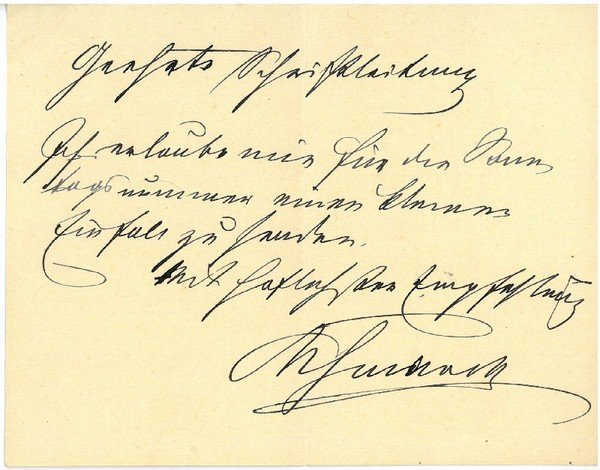 Geehrte Schriftleitung
Ich erlaube mir für die Sonn
tagsnummer einen kleinen
Einfall zu senden.
Mit höflichster Empfehlung